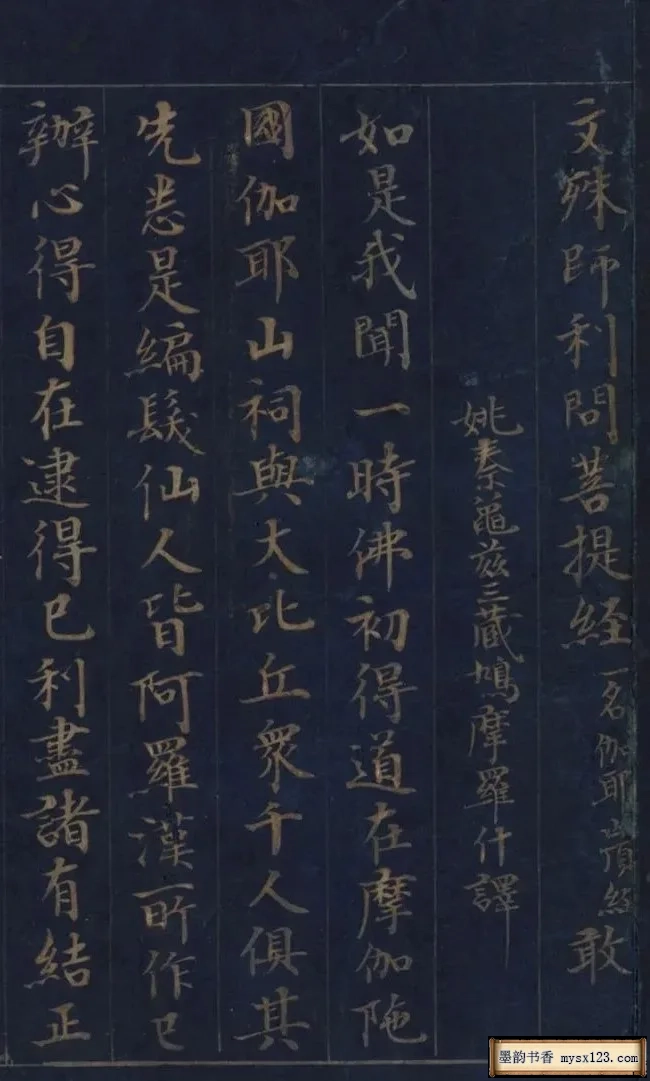 文殊師利問菩提經一名伽耶山頂經 敢
姚秦龜茲三藏鳩摩羅什譯
如是我聞一時佛初得道在摩伽陁
國伽耶山祠與大比丘衆千人俱其
先悉是編髮仙人皆阿羅漢所作已
辦心得自在逮得已利盡諸有結正
墨韵书香 mysx123.com